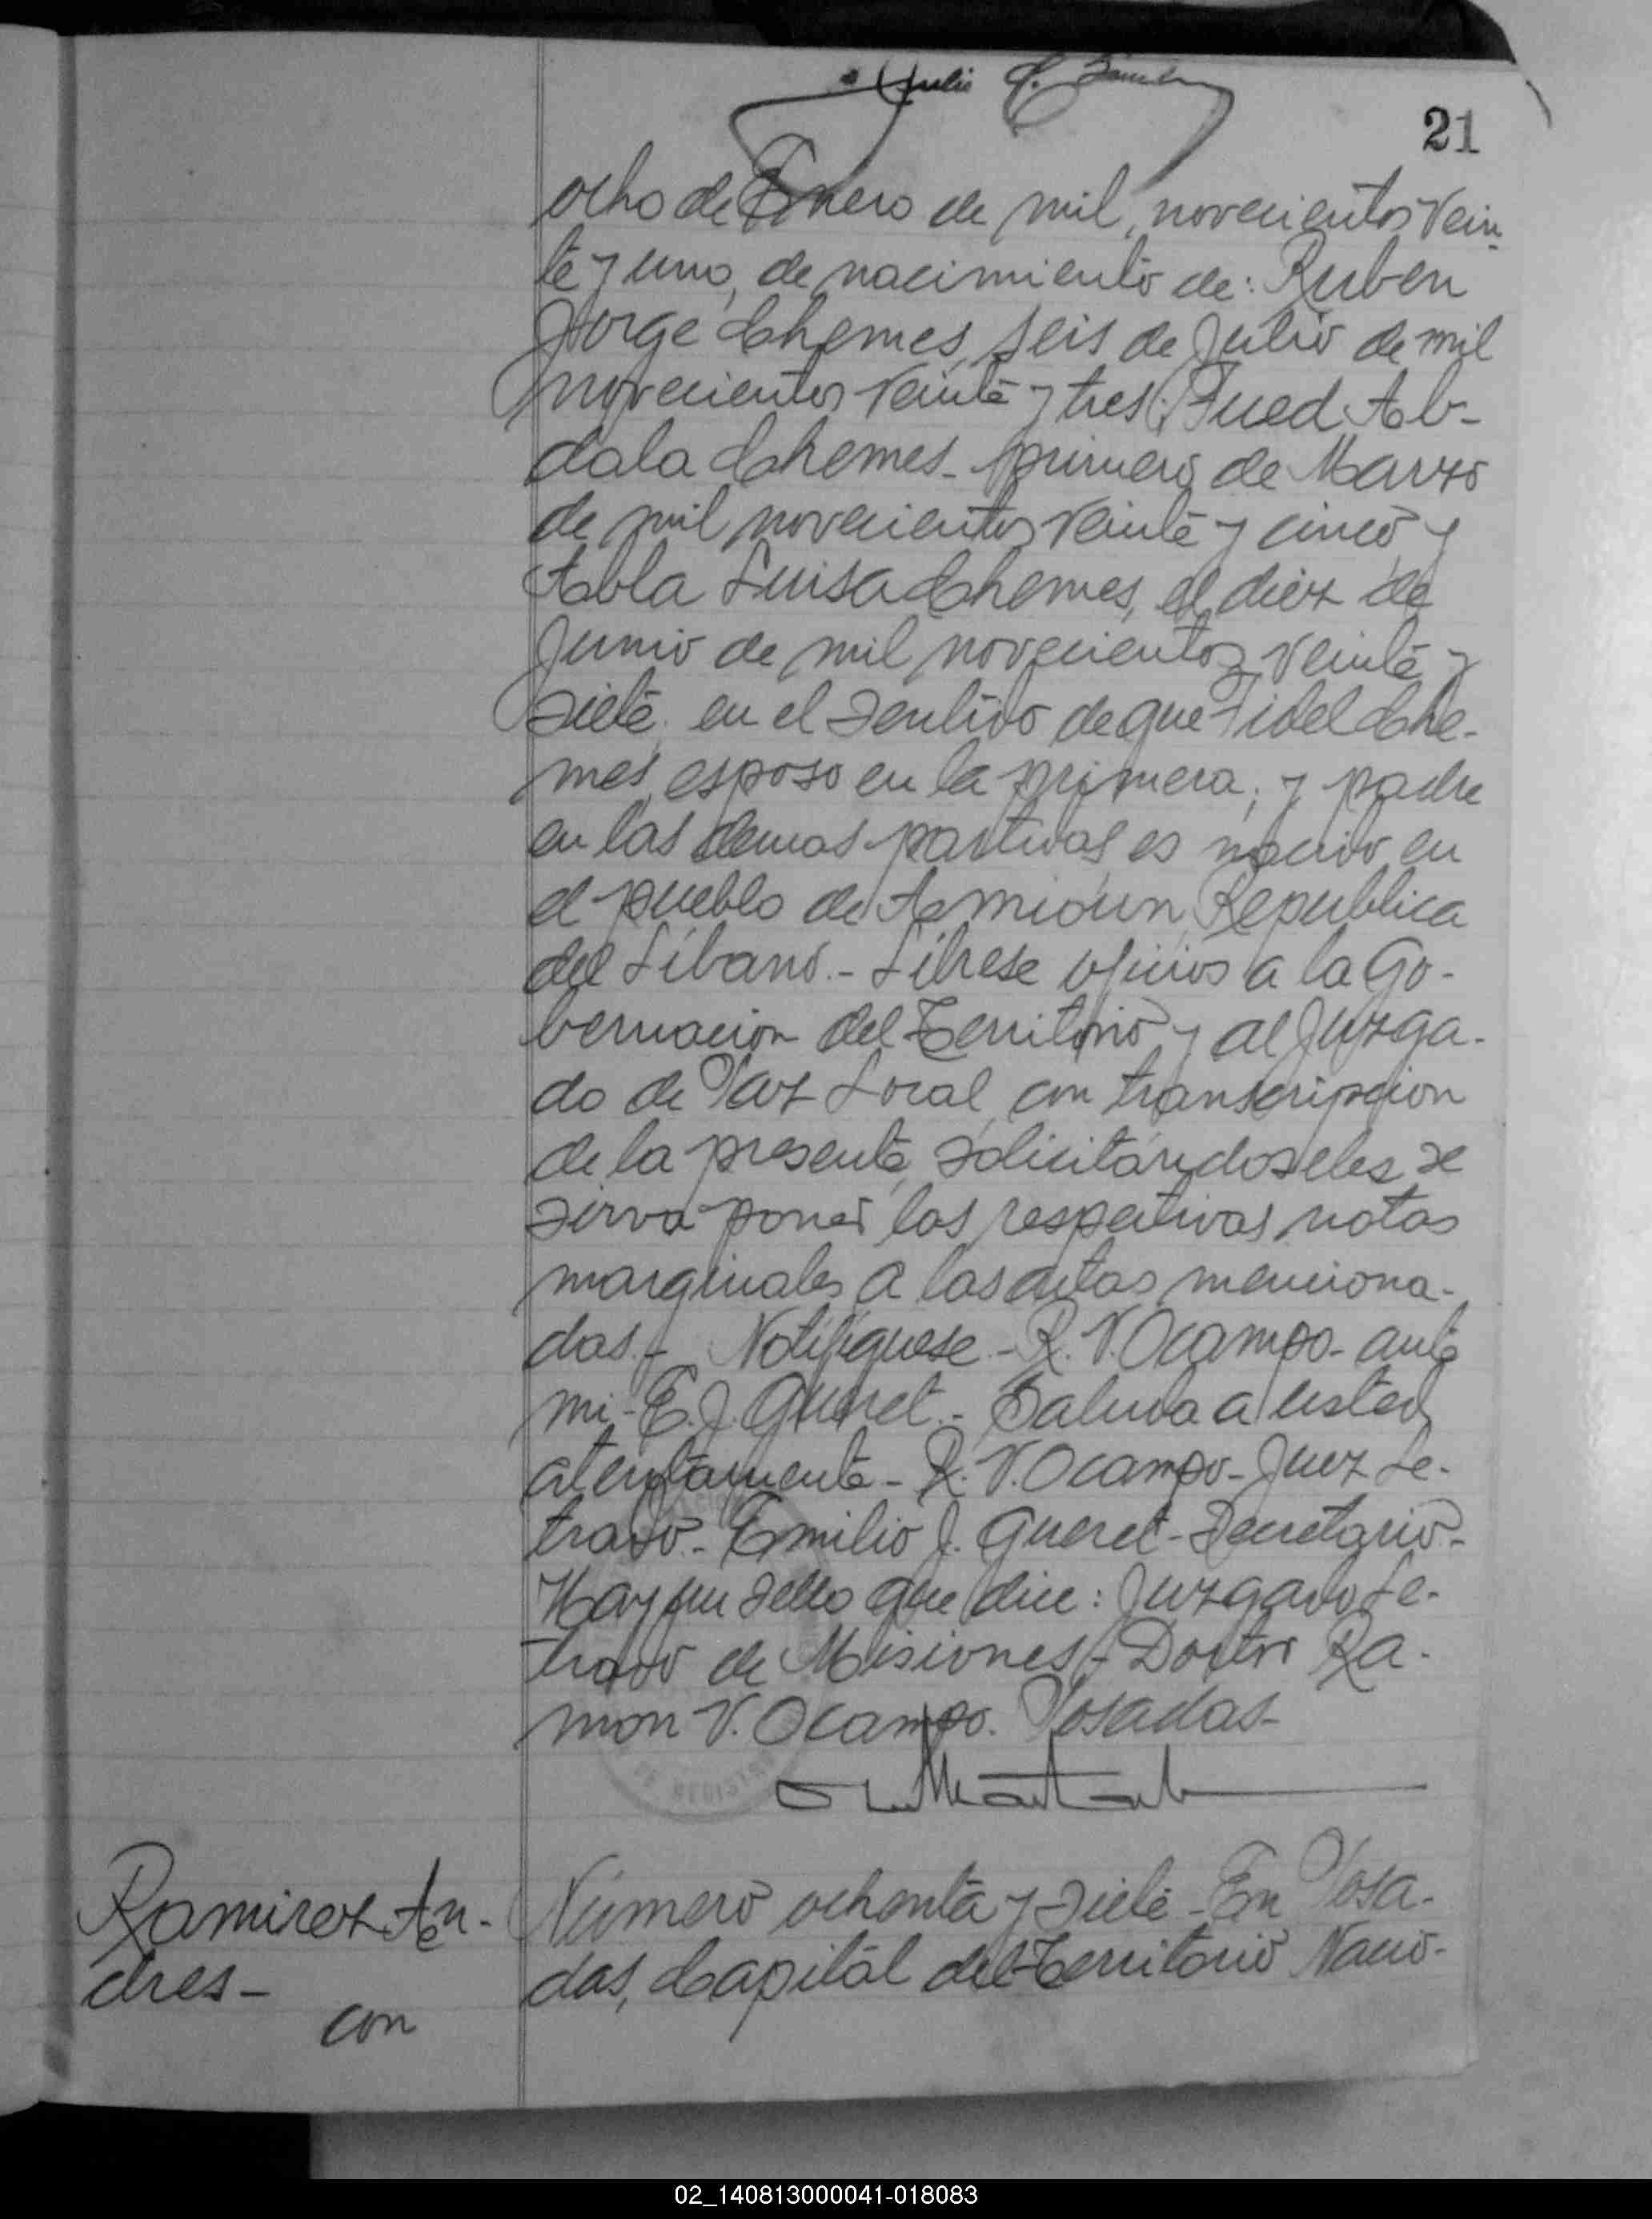 Julio
21
ocho de Enero de mil, novecientos vein-
te y uno, de nacimiento de: Ruben
Jorge Chemes, seis de Julio de mil
novecientos veinte y tres; Fued Ab-
dala Chemes - primero de Marzo
de mil novecientos veinte y cinco y
Abla Luisa Chemes, el diez de
Junio de mil novecientos veinte y
siete, en el sentido de que Fidel Che-
mes, esposo en la primera, y padre
en las demas partidas, es nacido en
el pueblo de Amioun, Republica
del Líbano. - Líbrese oficios a la Go-
bernacion del Territorio y al Juzga-
do de Paz Local, con transcripcion
de la presente, solicitándoseles se
sirva poner las respectivas notas
marginales a las actas menciona-
das. - Notifíquese - R. V. Ocampo - ante
mi - E. J. Gueret. - Saluda a usted
atentamente - R. V. Ocampo - Juez Le-
trado - Emilio J. Gueret - Secretario -
Hay un sello que dice: Juzgado Le-
trado de Misiones - Doctor Ra-
mon V. Ocampo. Posadas -
DE REGISTR
Ramirez An-
dres -
con
Número ochenta y siete - En Posa-
das, Capital del Territorio Nacio-
02_140813000041-018083